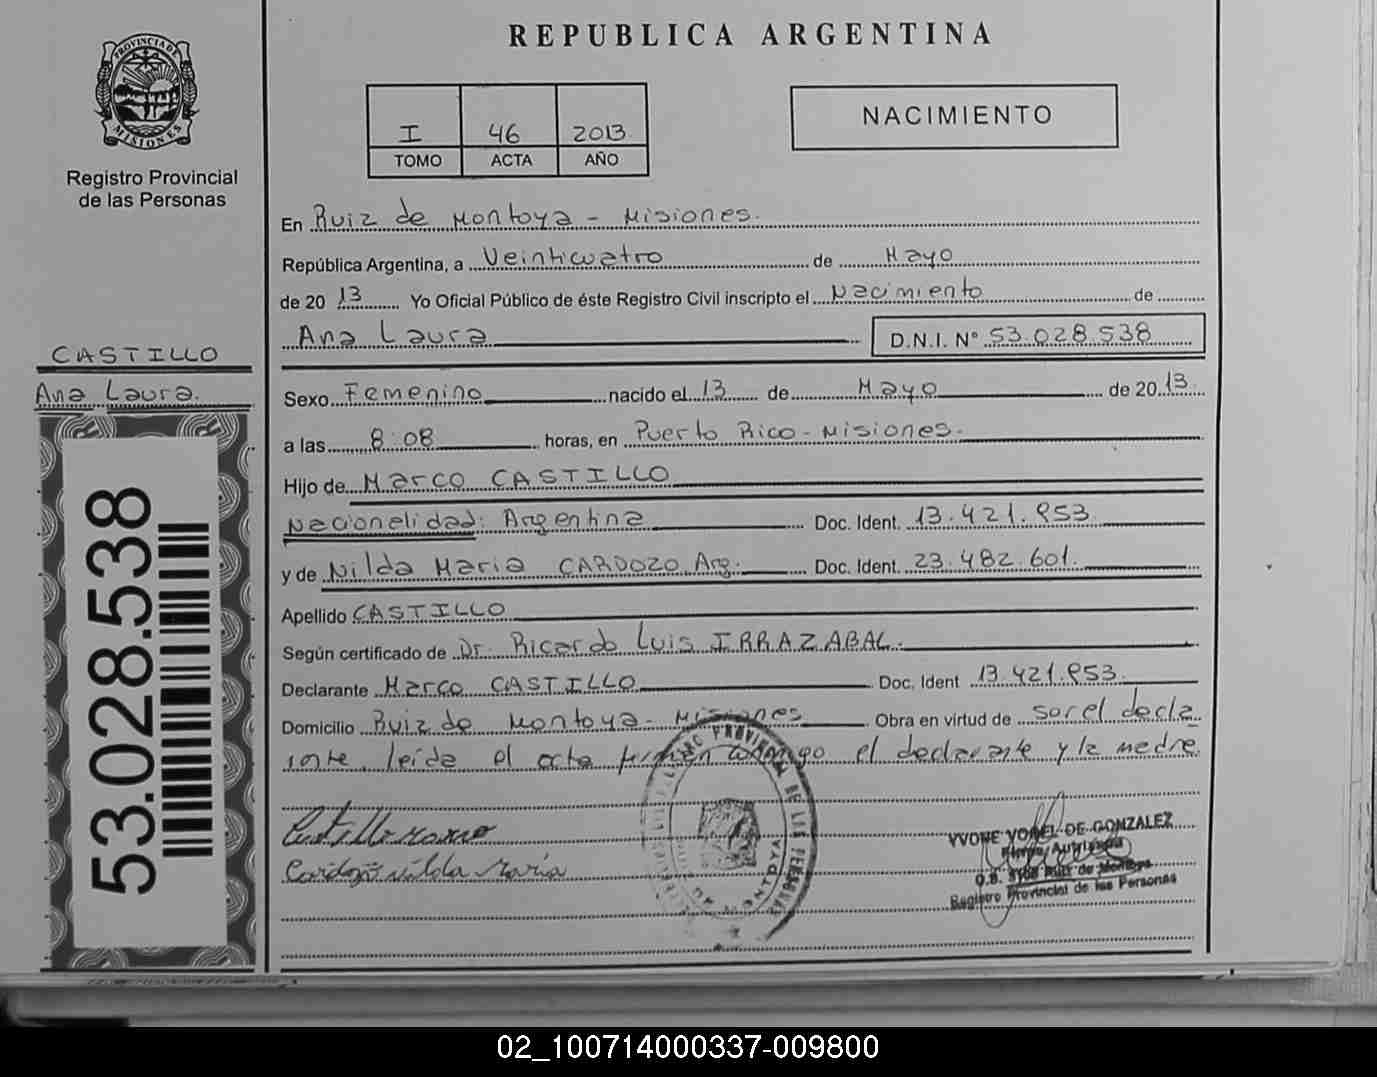 REPUBLICA ARGENTINA
PROVINCIA DE MISIONES
Registro Provincial
de las Personas
I 46 2013
TOMO ACTA AÑO
NACIMIENTO
En Ruiz de Montoya - Misiones.
República Argentina, a Veinticuatro de Mayo
de 20 13 Yo Oficial Público de éste Registro Civil inscripto el Nacimiento de
Ana Laura D.N.I. N° 53.028.538
CASTILLO
Ana Laura.
53.028.538
Sexo Femenino nacido el 13 de Mayo de 20 13.
a las 8:08 horas, en Puerto Rico - Misiones.
Hijo de Marco CASTILLO
Nacionalidad: Argentina Doc. Ident. 13.421.953
y de Nilda Maria CARDOZO Arg. Doc. Ident. 23.482.601.
Apellido CASTILLO
Según certificado de Dr. Ricardo Luis IRRAZABAL.
Declarante Marco CASTILLO Doc. Ident 13.421.953.
Domicilio Ruiz de Montoya - Misiones Obra en virtud de ser el decla
rante, leída el acta firman conmigo el declarante y la madre.
Castillo marco
Cardozo nilda maría
YVONE VOGEL DE GONZALEZ
Firma Autorizada
O.S. Ruiz de Montoya
Registro Provincial de las Personas
02_100714000337-009800